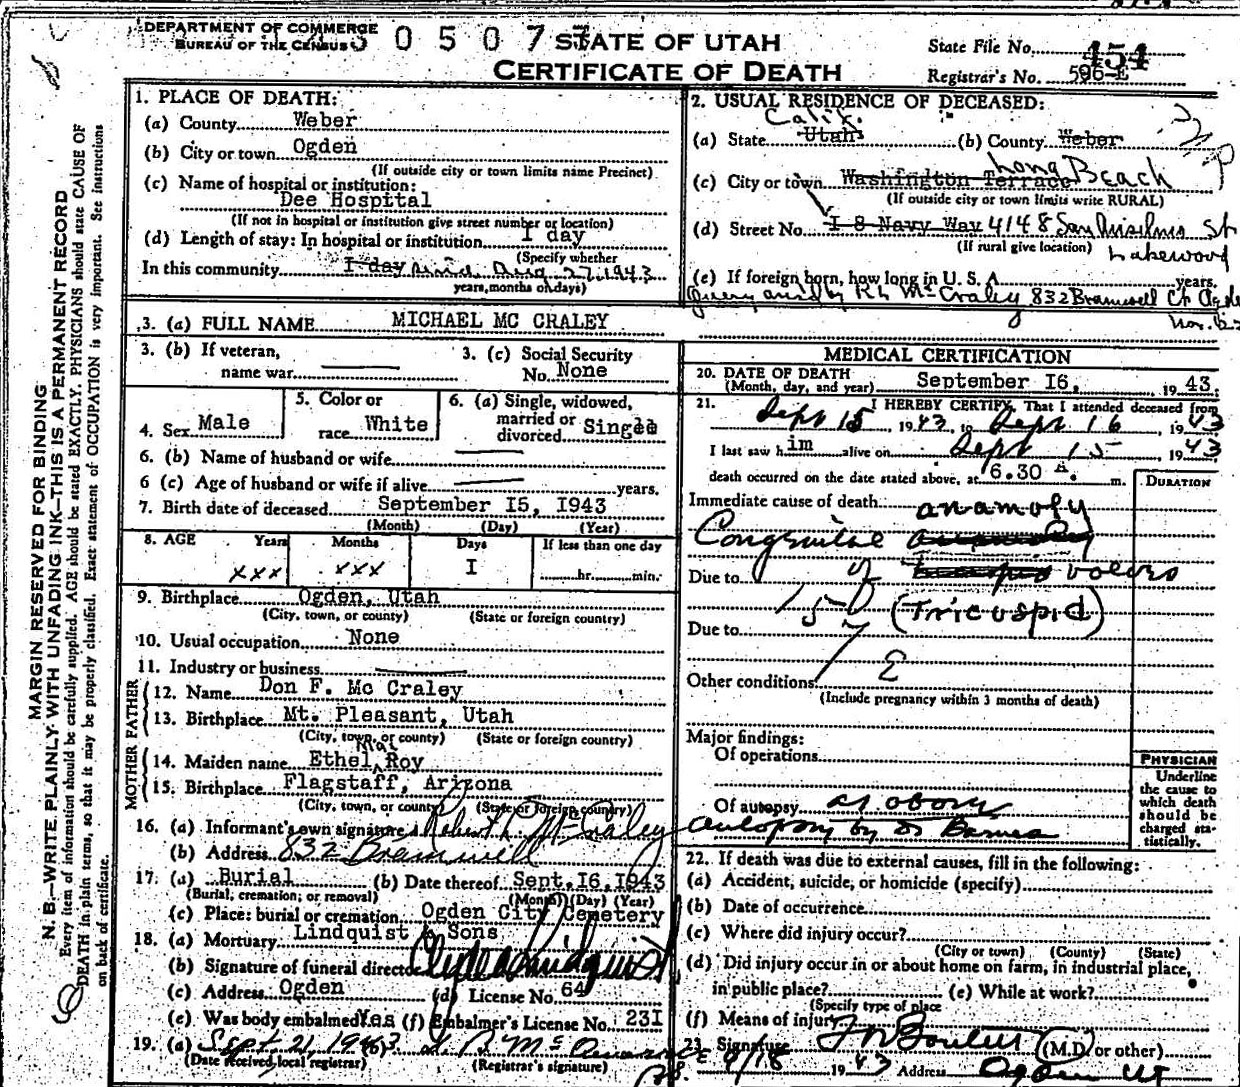 DEPARTMENT OF COMMERCE
BUREAU OF THE CENSUS
0 5 0 7
STATE OF UTAH
CERTIFICATE OF DEATH
State File No. 454
Registrar's No. 596-E
MARGIN RESERVED FOR BINDING
N. B.—WRITE PLAINLY WITH UNFADING INK—THIS IS A PERMANENT RECORD
Every item of information should be carefully supplied. AGE should be stated EXACTLY. PHYSICIANS should state CAUSE OF
DEATH in plain terms, so that it may be properly classified. Exact statement of OCCUPATION is very important. See instructions
on back of certificate.
1. PLACE OF DEATH:
(a) County Weber
(b) City or town Ogden
(If outside city or town limits name Precinct)
(c) Name of hospital or institution:
Dee Hospital
(If not in hospital or institution give street number or location)
(d) Length of stay: In hospital or institution I day
(Specify whether
In this community I day Aug 27, 1943
years, months or days)
2. USUAL RESIDENCE OF DECEASED:
Calif.
(a) State Utah (b) County Weber
Long Beach
(c) City or town Washington Terrace
(If outside city or town limits write RURAL)
(d) Street No. I 8 Navy Way 4148 San Anselmo St
(If rural give location) Lakewood
(e) If foreign born, how long in U. S. A. years.
McCraley 832 Bramwell Ct
3. (a) FULL NAME MICHAEL MC CRALEY
3. (b) If veteran,
name war
3. (c) Social Security
No. None
4. Sex Male
5. Color or
race White
6. (a) Single, widowed,
married or
divorced Single
6. (b) Name of husband or wife
6 (c) Age of husband or wife if alive years.
7. Birth date of deceased September I5, I943
(Month) (Day) (Year)
8. AGE Years Months Days If less than one day
xxx xxx I hr. min.
9. Birthplace Ogden, Utah
(City, town, or county) (State or foreign country)
10. Usual occupation None
11. Industry or business
FATHER
12. Name Don F. Mc Craley
13. Birthplace Mt. Pleasant, Utah
(City, town, or county) (State or foreign country)
MOTHER
Mai
14. Maiden name Ethel Roy
15. Birthplace Flagstaff, Arizona
(City, town, or county) (State or foreign country)
16. (a) Informant's own signature McCraley
(b) Address 832 Bramwell
17. (a) Burial (b) Date thereof Sept. I6, I943
(Burial, cremation, or removal) (Month) (Day) (Year)
(c) Place: burial or cremation Ogden City Cemetery
18. (a) Mortuary Lindquist & Sons
(b) Signature of funeral director Clyde Lindquist
(c) Address Ogden (d) License No. 64
(e) Was body embalmed? Yes (f) Embalmer's License No. 23I
19. (a) Sept. 21, 1943
(Date received local registrar) (Registrar's signature)
MEDICAL CERTIFICATION
20. DATE OF DEATH
(Month, day, and year) September I6, 19 43.
21. I HEREBY CERTIFY, That I attended deceased from
Sept 15, 1943, to Sept 16, 1943
I last saw h im alive on Sept 15 1943
death occurred on the date stated above, at 6.30 A. m.
DURATION
Immediate cause of death anamoly
Due to of
157 (Tricuspid)
Due to
E
Other conditions
(Include pregnancy within 3 months of death)
Major findings:
Of operations
Of autopsy as above
autopsy by Dr Barnes
PHYSICIAN
Underline
the cause to
which death
should be
charged sta-
tistically.
22. If death was due to external causes, fill in the following:
(a) Accident, suicide, or homicide (specify)
(b) Date of occurrence
(c) Where did injury occur?
(City or town) (County) (State)
(d) Did injury occur in or about home on farm, in industrial place,
in public place? (e) While at work?
(Specify type of place
(f) Means of injury
23. Signature (M.D. or other)
9/18 1943 Address Ogden Ut